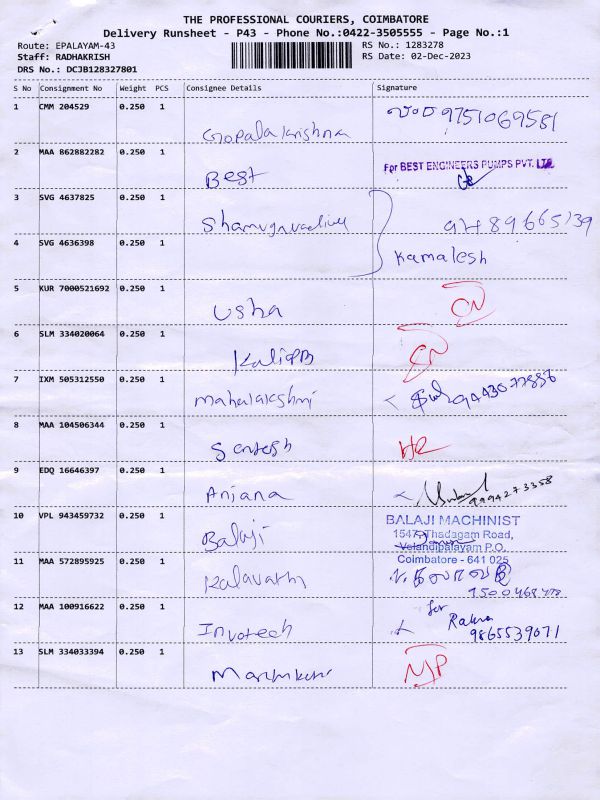 THE PROFESSIONAL COURIERS, COIMBATORE
Delivery Runsheet - P43 - Phone No.:0422-3505555 - Page No.:1
Route: EPALAYAM-43 RS No.: 1283278
Staff: RADHAKRISH RS Date: 02-Dec-2023
DRS No.: DCJB128327801
S No Consignment No Weight PCS Consignee Details Signature
1 CMM 204529 0.250 1
Gopala krishna 9751069581
2 MAA 862882282 0.250 1
Best For BEST ENGINEERS PUMPS PVT. LTD.
3 SVG 4637825 0.250 1
9489665139
4 SVG 4636398 0.250 1
Kamalesh
5 KUR 7000521692 0.250 1
Usha
6 SLM 334020064 0.250 1
7 IXM 505312550 0.250 1
Mahalakshmi
8 MAA 104506344 0.250 1
Santosh
9 EDQ 16646397 0.250 1
Anjana 9994273358
10 VPL 943459732 0.250 1
Balaji
BALAJI MACHINIST
1547, Thadagam Road,
Velandipalayam P.O.
Coimbatore - 641 025
11 MAA 572895925 0.250 1
Kalavathi
12 MAA 100916622 0.250 1
Invotech for
9865539071
13 SLM 334033394 0.250 1